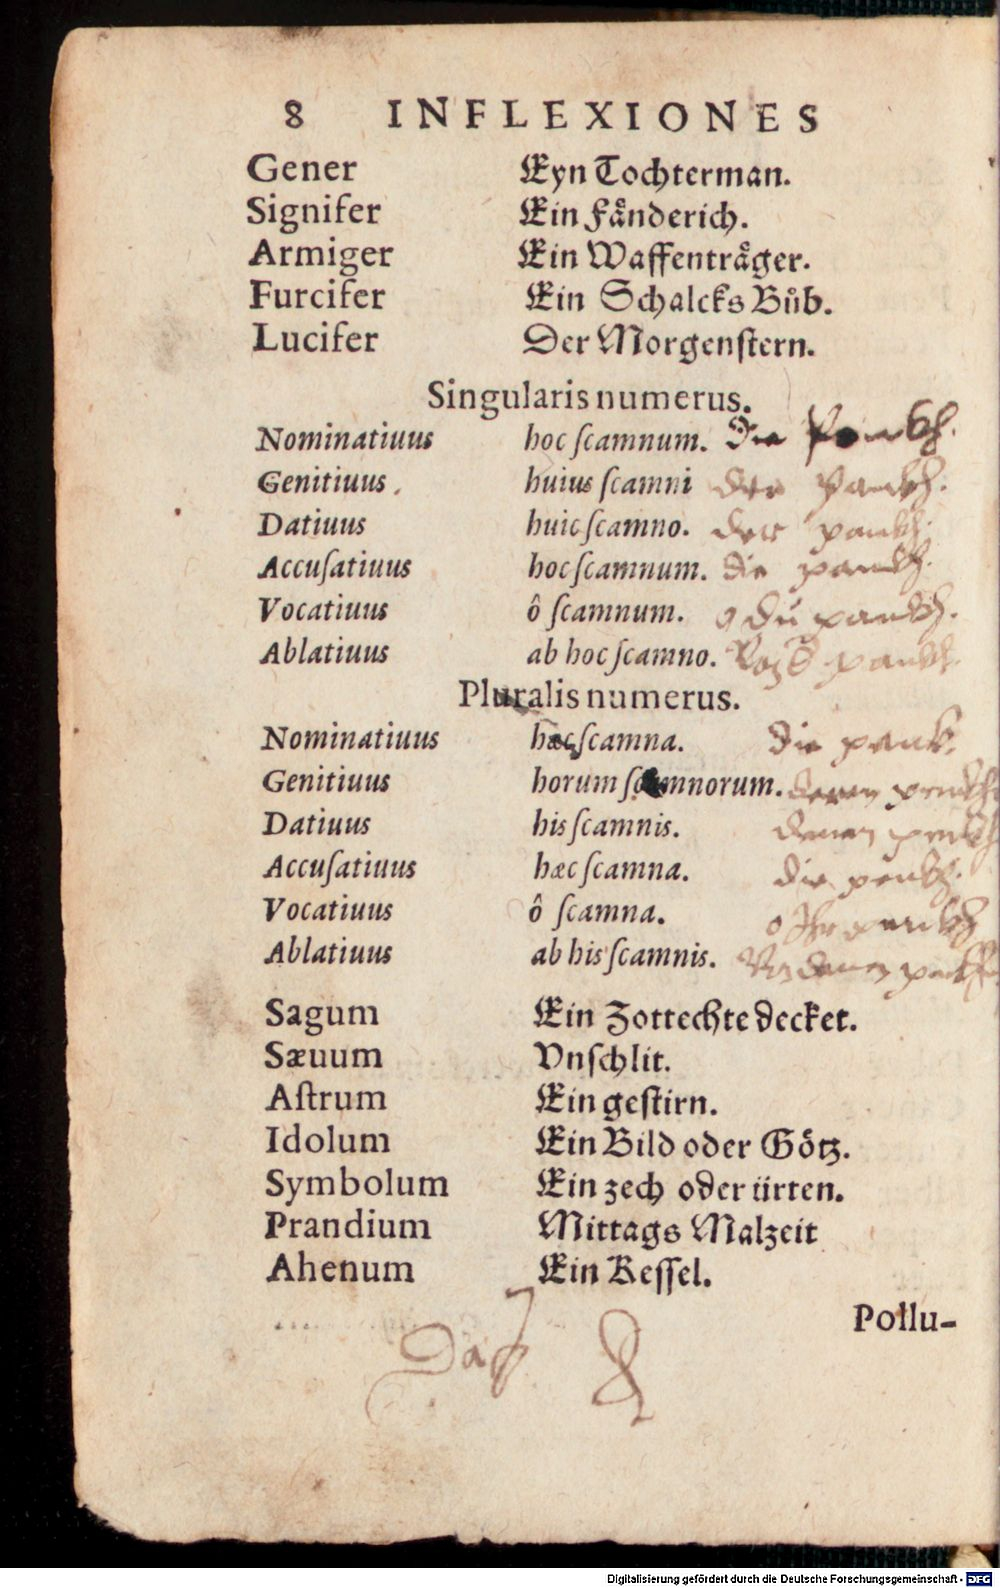 8 INFLEXIONES
Gener Eyn Tochterman.
Signifer Ein Fåͤnderich.
Armiger Ein Waffentraͤger.
Furcifer Ein Schalcks Bůb.
Lucifer Der Morgenſtern.
Singularis numerus.
Nominatiuus hoc ſcamnum. Die
Genitiuus huius ſcamni der panckh.
Datiuus huic ſcamno. der panckh.
Accuſatiuus hoc ſcamnum. die panckh.
Vocatiuus ô ſcamnum. o du panckh.
Ablatiuus ab hoc ſcamno.
Pluralis numerus.
Nominatiuus hæc ſcamna. die penck.
Genitiuus horum ſcamnorum. deren penckh
Datiuus his ſcamnis. denen penckh
Accuſatiuus hæc ſcamna. die penckh.
Vocatiuus ô ſcamna. o Ihr penckh
Ablatiuus ab his ſcamnis. denen
Sagum Ein Zottechte decket.
Sæuum Vnſchlit.
Aſtrum Ein geſtirn.
Idolum Ein Bild oder Goͤtz.
Symbolum Ein zech oder ürten.
Prandium Mittags Malzeit
Ahenum Ein Keſſel.
Pollu-
Das
Digitalisierung gefördert durch die Deutsche Forschungsgemeinschaft - DFG